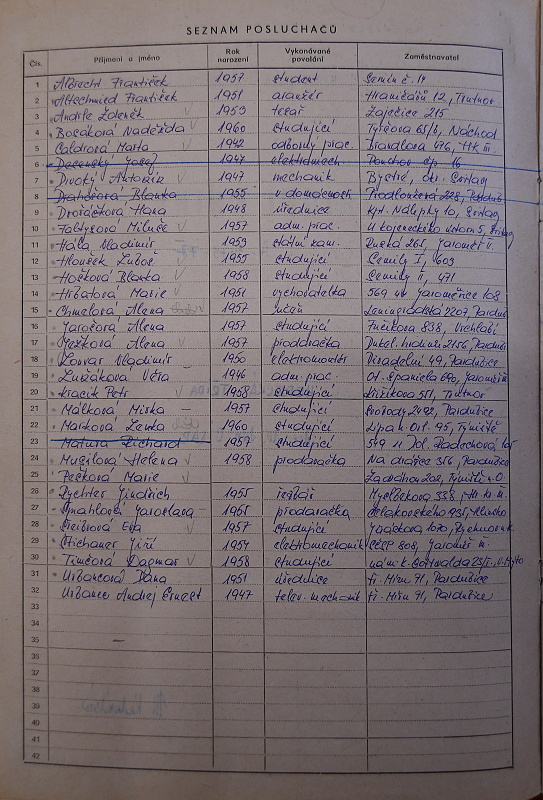 SEZNAM POSLUCHAČŮ
Čís. Příjmení a jméno Rok narození Vykonávané povolání Zaměstnavatel
1 Albrecht František 1957 student Semín č. 14
2 Altschmied František 1951 aranžér Hraničářů 12, Trutnov
3 Andrle Zdeněk 1953 tesař Zaječice 215
4 Bosáková Naděžda 1960 studující Tyršova 65/8, Náchod
5 Caldrová Marta 1942 odborný prac. 476, HK III.
6 Dečenský Josef 1947 elektromech. čp 16
7 Divoký Antonín 1947 mechanik Bystré, okr. Svitavy
8 Drahošová Blanka 1955 v domácnosti Prodloužená 228, Pardub
9 Dvořáčková Hana 1948 úřednice kpt. Nálepky 10, Svitavy
10 Faltysová Miluše 1957 adm. prac. U kojeneckého ústavu 5, Svitavy
11 Hála Vladimír 1953 státní zam. Ruská 265, Jaroměř V.
12 Hloušek Luboš 1955 studující Semily I, 603
13 Hočková Blanka 1958 studující Semily II, 471
14 Hrbatová Marie 1951 vychovatelka 569 44 Jaroměřice 108
15 Chmelová Alena 1957 Leningradská 2207, Pardub
16 Jarošová Alena 1957 studující Fučíkova 838, Vrchlabí
17 Ježková Alena 1957 prodavačka Dukel. hrdinů 2156, Pardub
18 Louvar Vladimír 1950 elektromontér Divadelní 49, Pardubice
19 Lužáková Věra 1946 adm. prac. Ot. Španiela 690, Jaroměř
20 Macík Petr 1958 studující Křižíkova 551, Trutnov
21 Málková Mirka 1957 studující Svobody 2492, Pardubice
22 Marková Lenka 1960 studující Lípa n. Orl. 95, Týniště
23 Matura Richard 1957 studující 549 11 Dol. Radechová 105
24 Musilová Helena 1958 prodavačka Na drážce 356, Pardubice
25 Pečková Marie Zavadilova 202, Týniště n.O.
26 Rychter Jindřich 1955 řezbář Mýtská 338, HK III.
27 Jaroslava 1965 prodavačka 435, Hlinsko
28 Eva 1957 studující Jiráskova 1070, Rychnov n.K.
29 Stichauer Jiří 1954 elektromechanik ČSSP 808, Jaroměř II.
30 Timčová Dagmar 1958 studující nám. K. Gottwalda 23/I, V. Mýto
31 Urbancová Dana 1951 úřednice tř. Míru 71, Pardubice
32 Urbanec Andrej Ernest 1947 telev. mechanik tř. Míru 71, Pardubice
33
34
35 —
36
37
38
39
40
41
42